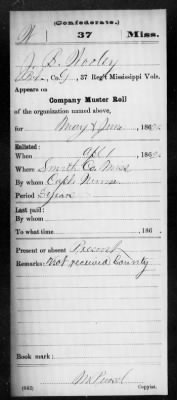 (Confederate.)
W 37 Miss.
J. B. Wooley
Co. G, 37 Reg't Mississippi Vols.
Appears on
Company Muster Roll
of the organization named above,
for May & June, 186
Enlisted:
When Apl 1, 186
Where Smith Co. Miss
By whom Capt.
Period 3 Years
Last paid:
By whom
To what time , 186
Present or absent Present
Remarks: Not received Bounty
Book mark:
(642) Copyist.